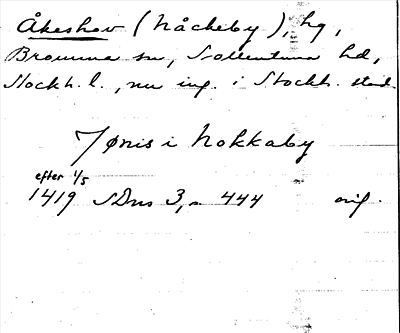 Åkeshov (Nåckeby), hg,
Bromma sn, Sollentuna hd,
Stockh. l., nu ing. i Stockh. stad.
Jønis i Nokkaby
efter 1/5
1419 SDns 3, s 444 orig.